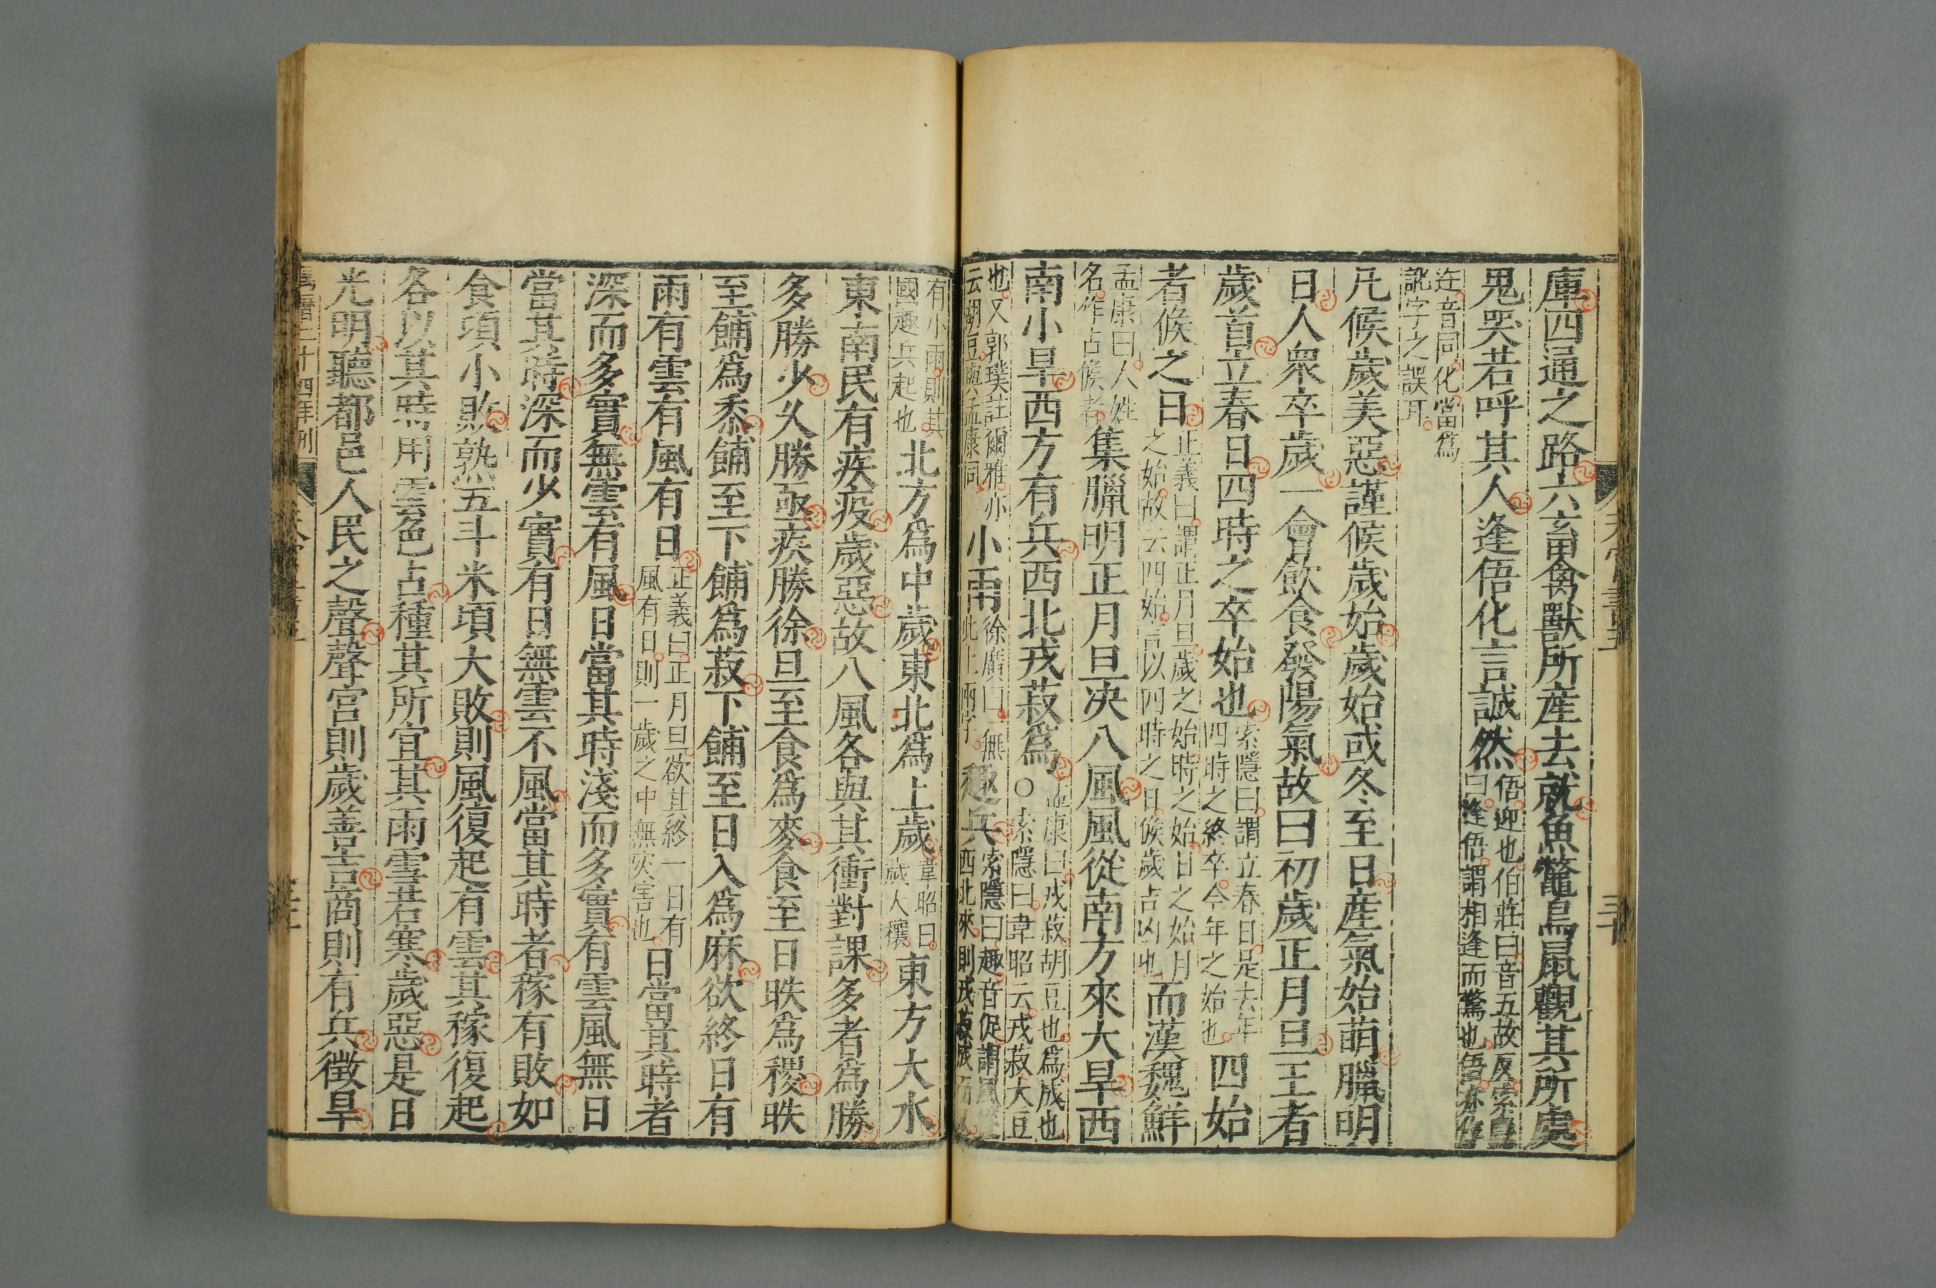 庫四通之路六畜禽獸所產去就魚鱉鳥鼠觀其所處
鬼哭若呼其人逢俉化言誠然俉迎也伯莊曰音五故反索隱曰逢俉謂相逢而驚也俉亦
迕音同化當爲訛字之誤耳
凡候歲美惡謹候歲始歲始或冬至日產氣始萌臘明
日人衆卒歲一會飲食發陽氣故曰初歲正月旦王者
歲首立春日四時之卒始也索隱曰謂立春日是去年四時之終卒今年之始也四始
者候之日正義曰謂正月旦歲之始時之始日之始月之始故云四始言以四時之日候歲吉凶也而漢魏鮮
孟康曰人姓名作占候者集臘明正月旦决八風風從南方來大旱西
南小旱西方有兵西北戎菽爲孟康曰戎菽胡豆也爲成也○索隱曰韋昭云戎菽大豆
也又郭璞註爾雅亦云胡豆與孟康同小雨徐廣曰一無此上兩字趣兵索隱曰趣音促謂風從西北來則戎菽成而又
有小雨則其國趣兵起也北方爲中歲東北爲上歲韋昭曰歲大穰東方大水
東南民有疾疫歲惡故八風各與其衝對課多者爲勝
多勝少久勝亟疾勝徐旦至食爲麥食至日昳爲稷昳
至餔爲黍餔至下餔爲菽下餔至日入爲麻欲終日有
雨有雲有風有日正義曰正月旦欲其終一日有風有日則一歲之中無灾害也日當其時者
深而多實無雲有風日當其時淺而多實有雲風無日
當其時深而少實有日無雲不風當其時者稼有敗如
食頃小敗熟五斗米頃大敗則風復起有雲其稼復起
各以其時用雲色占種其所宜其雨雪若寒歲惡是日
光明聽都邑人民之聲聲宮則歲善吉商則有兵徵旱